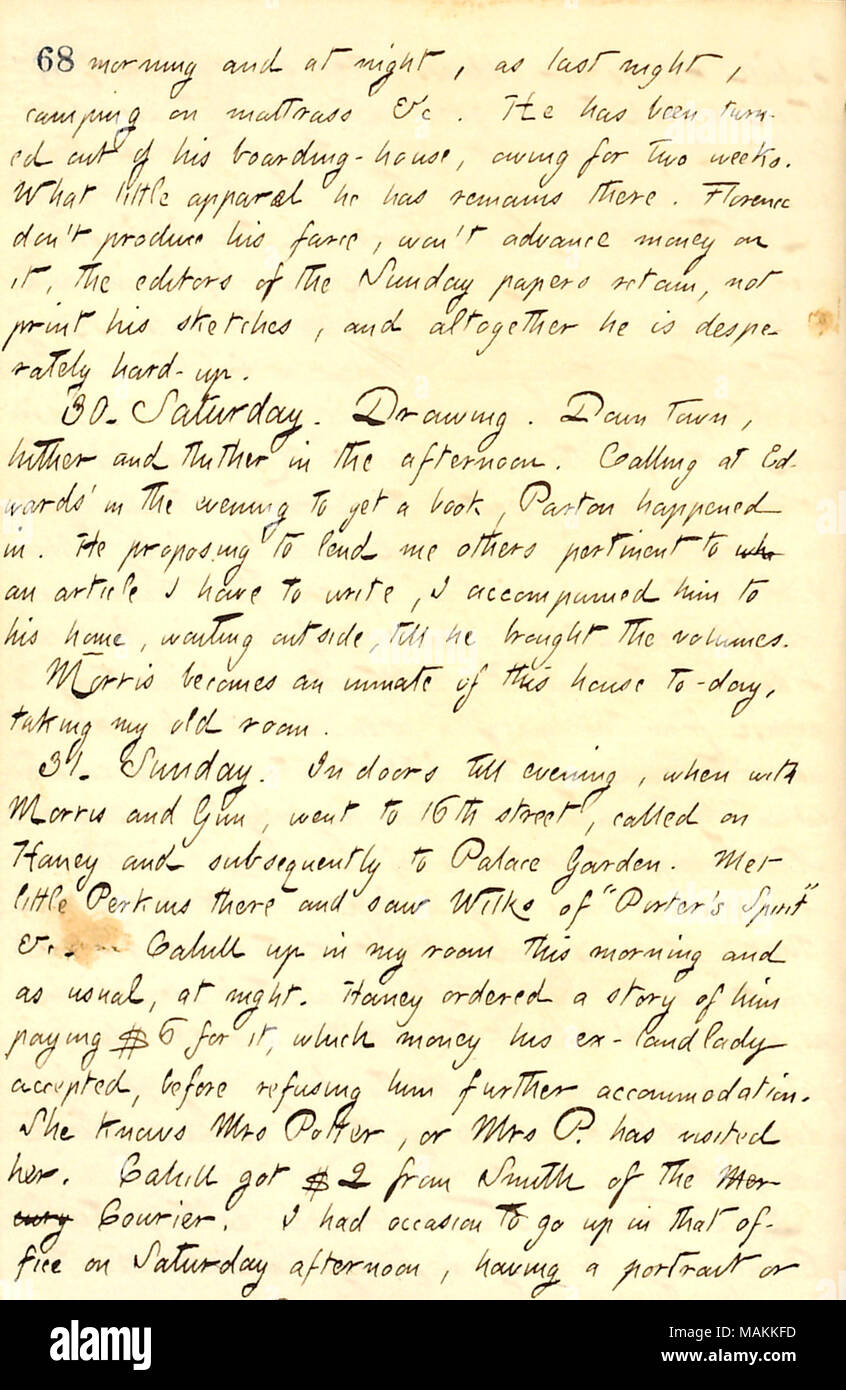 68 morning and at night, as last night,
camping on mattrass &c. He has been turn-
ed out of his boarding-house, owing for two weeks.
What little apparel he has remains there. Florence
don't produce his farce, won't advance money on
it, the editors of the Sunday papers retain, not
print his sketches, and altogether he is despe-
rately hard-up.
30. Saturday. Drawing. Down town,
hither and thither in the afternoon. Calling at Ed-
wards' in the evening to get a book, Parton happened
in. He proposing to lend me others pertinent to wh
an article I have to write, I accompanied him to
his home, waiting outside, till he brought the volumes.
Morris becomes an inmate of this house to-day,
taking my old room.
31. Sunday. In doors till evening, when with
Morris and Gun, went to 16th street, called on
Haney and subsequently to Palace Garden. Met
little Perkins there and saw Wilks of "Porter's Spirit"
&c. Cahill up in my room this morning and
as usual, at night. Haney ordered a story of him
paying $6 for it, which money his ex-landlady
accepted, before refusing him further accommodation.
She knows Mrs Potter, or Mrs P. has visited
her. Cahill got $2 from Smith of the Mer-
cury Courier. I had occasion to go up in that of-
fice on Saturday afternoon, having a portrait or
alamy
Image ID: MAKKFD
www.alamy.com